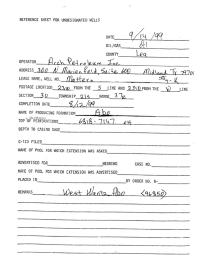 REFERENCE SHEET FOR UNDESIGNATED WELLS
DATE 9/14/99
OIL/GAS Oil
COUNTY Lea
OPERATOR Arch Petroleum Inc.
ADDRESS 300 N Marienfeld, Suite 600 Midland Tx 79701
LEASE NAME, WELL NO. Mattern
FOOTAGE LOCATION FROM THE S LINE AND 2310 FROM THE LINE
SECTION 30 TOWNSHIP 21S RANGE 37E
COMPLETION DATE 8/12/99
NAME OF PRODUCING FORMATION Abo
TOP OF PERFORATIONS 6818-7147
DEPTH TO CASING SHOE
C-123 FILED
NAME OF POOL FOR WHICH EXTENSION WAS ASKED
NAME OF POOL FOR WHICH EXTENSION WAS ADVERTISED
ADVERTISED FOR HEARING CASE NO.
NAME OF POOL FOR WHICH EXTENSION WAS
PLACED IN BY ORDER NO. R-
REMARKS West Wantz Abo